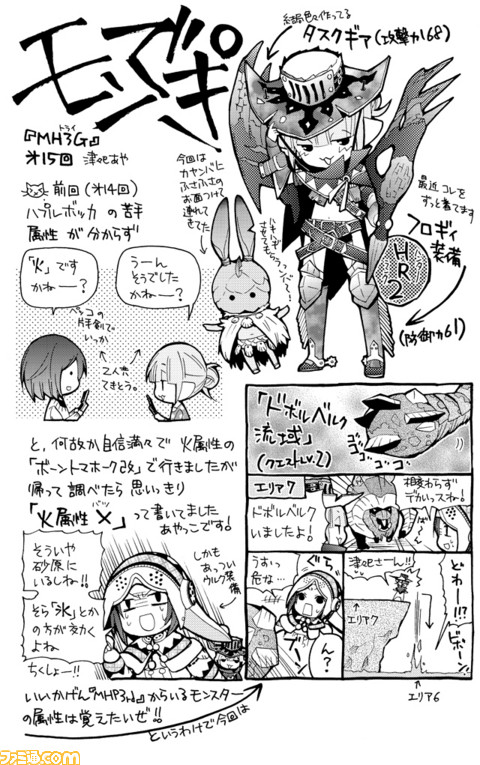 モンでき
『MH3G』
トライ
オ15回 津々巳あや
結局色々作ってる
タスクギア(攻撃力168)
今回は
カヤンバに
ふさふさの
お面つけて
連れて
きてた
最近コレを
ずっと着てます
フロギィ
装備
HR2
(防御力61)
前回(オ14回)
ハプルボッカ の 苦手
属性 が 分からず
「火」です
かねー?
うーん
そうでした
かねー?
ペッコの
片手剣で
いっか
2人共
てきとう。
と、何故か自信満々で 火属性の
「ボーントマホーク改」で行きましたが
帰って調べたら 思いっきり
「火属性 ×」って書いてました
あやっこです!
そういや
砂原に
いるしね!!
そら「氷」とか
の方が効く
よね
ちくしょー!!
しかも
あっつい
ウルク装備
いいかげん『MHP3rd』からいるモンスター
の属性は覚えたいぜ!!
というわけで今回は
「ドボルベルク
流域」
(クエストLv.2)
ゴゴゴゴゴ
エリア7
ドボルベルク
いましたよ!
相変わらず
でかいっスねー!
うおっつ
危な…
ぐら
ん?
津々巳さーん!!
エリア7
どわー!!?
ドボーン!
エリア6
ファミ通.com